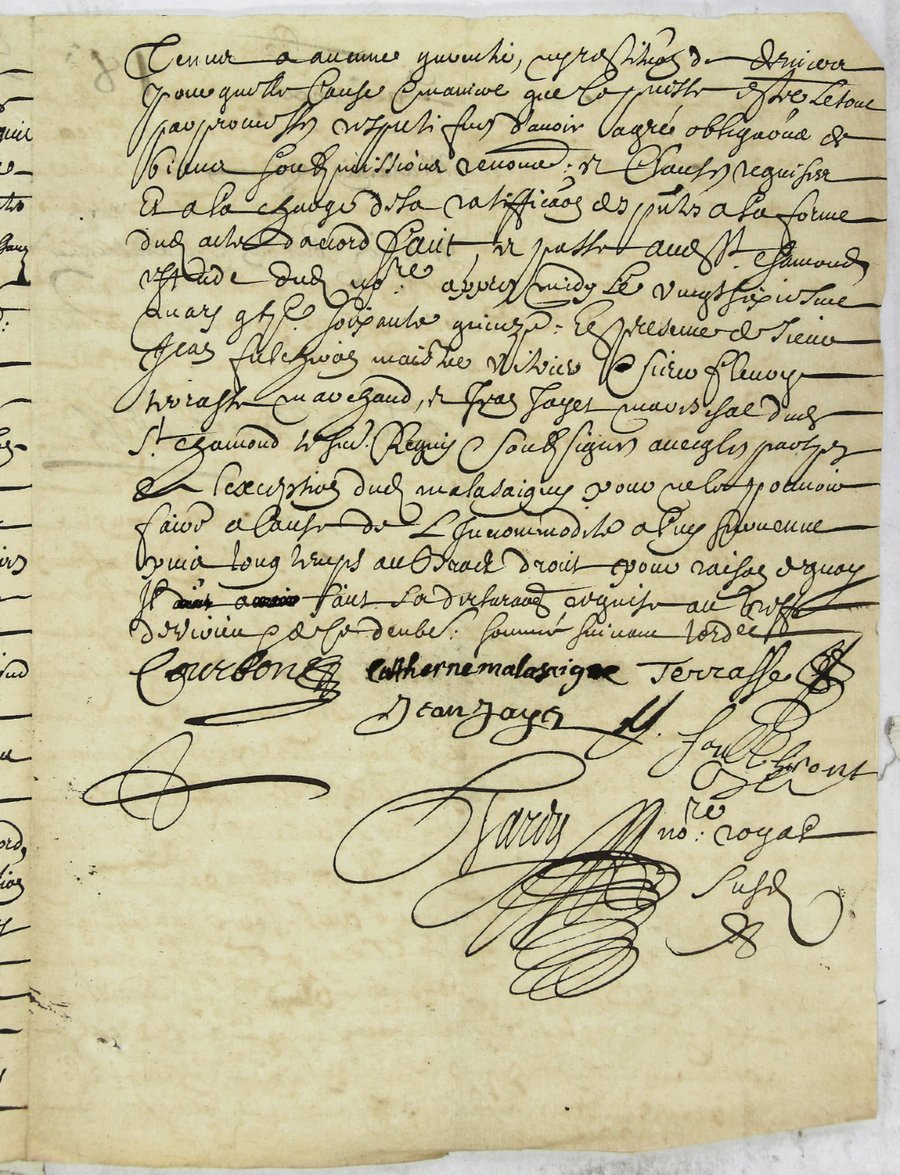 Tenue a aucune guarentie, ny restitution de deniers
pour quelle cause & maniere que ce puisse estre Le tout
par promesses respectifves d'avoir agré obligaōns de
biens soubzmissions renonc: et clauses requises
Et a la charge de la ratifficaōn des pntes a la forme
dud acte d'accord faict, et passé aud St. Chamond
estude dud nore. apprès midy Le vingt sixiesme
mars gbjc. soixante quinze: En presence de sieurs
Jean maistre vitrier & sieur fleury
terrasse marchand, et Jean Jayet mareschal dud
St. chamond soubsignes avec les parties
a l'exception dud malasaigne pour ne le pouvoir
faire a cause de L'Incommodité a luy survenue
puis long temps au bract droit pour raison de quoy
Il a faict sa declaraōn requise au
de et de ce deube: sommé suivant l'ord
Courbon catherne malasaigne Terrasse
Jean Jayet
Tardy nore: royal